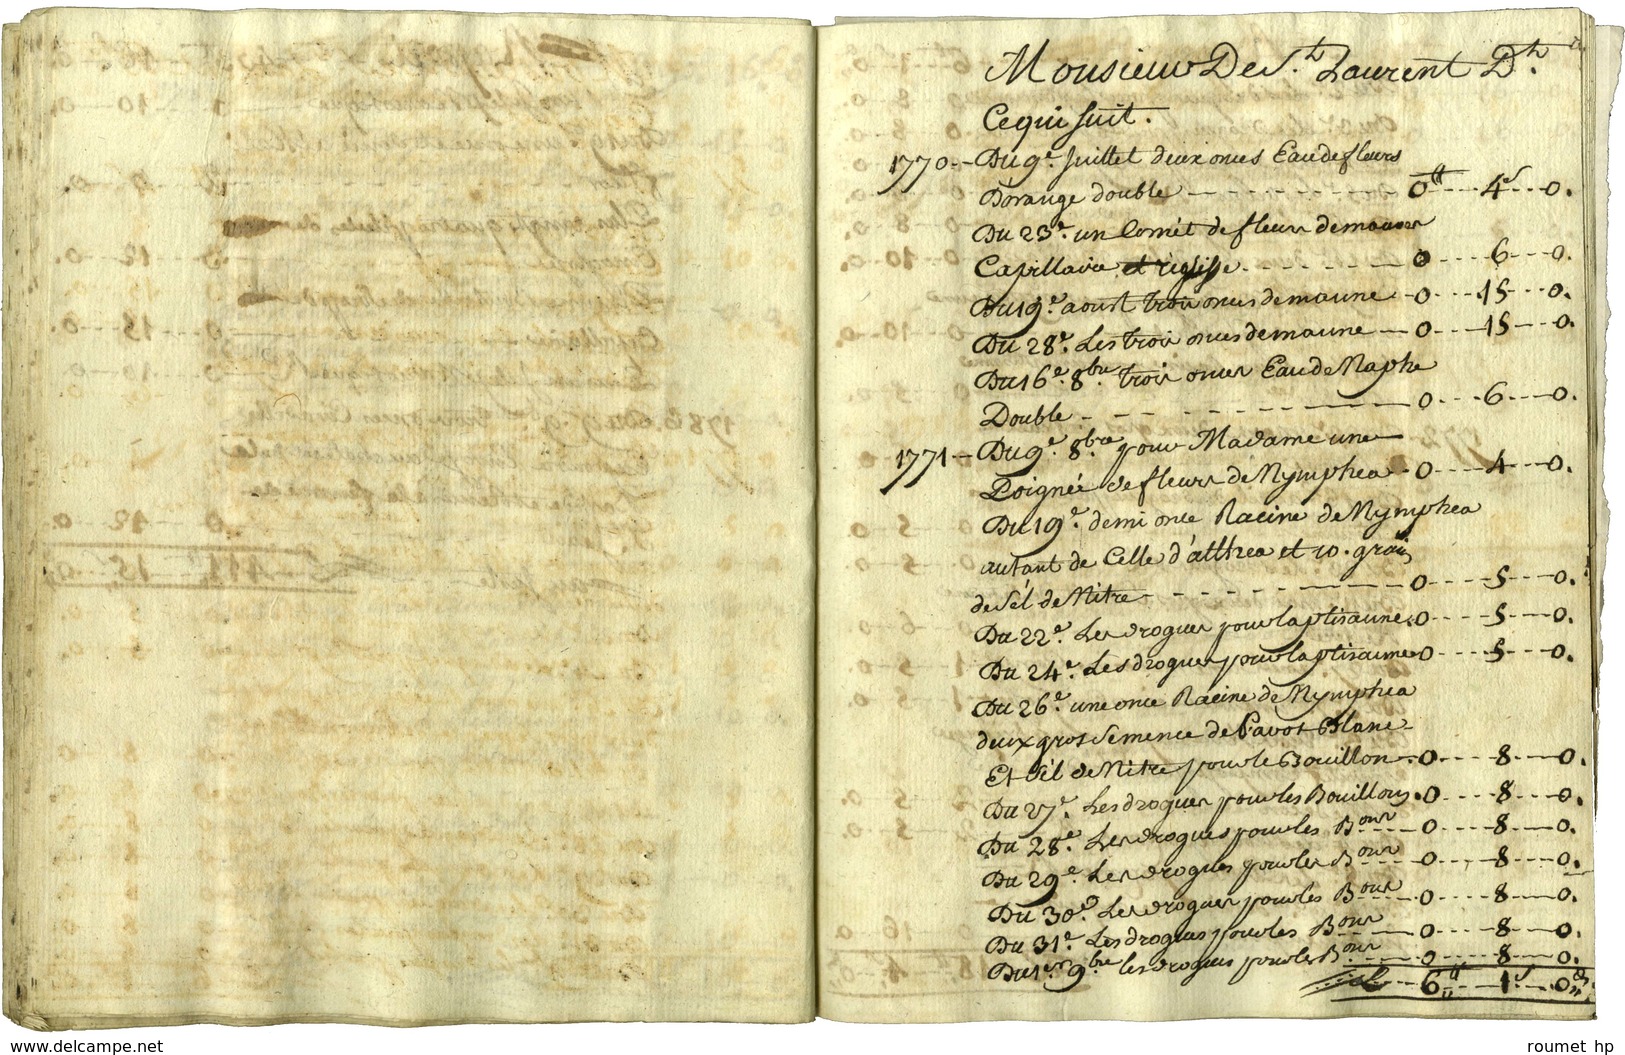 Monsieur De St. Laurent Dt.
Cequi suit.
1770.- Du 9e. Juillet deux onces Eau de fleurs
D'orange double - - - - - 0tt - - - 4s - - 0.
Du 23e. un Comét de fleurs de mauve
Capillaire et reglisse - - - - - 0 - - - 6 - - 0.
Du 19e. aoust trois onces de manne - 0 - - - 15 - - 0.
Du 28e. Les trois onces de manne - 0 - - - 15 - - 0.
Du 16e. 8bre. trois onces Eau de Naphe
Double - - - - - 0 - - - 6 - - 0.
1771 - Du 9e. 8bre. pour Madame une
Poignée de fleurs de Nymphea - - 0 - - - 4 - - 0.
Du 19e. demi once Racine de Nymphea
autant de Celle d'althea et 10. grains
de Sel de Nitre - - - - - 0 - - - 5 - - 0.
Du 22e. Les drogues pour la ptisanne. 0 - - - 5 - - 0.
Du 24e. Les drogues pour la ptisanne 0 - - - 5 - - 0.
Du 26e. une once Racine de Nymphea
deux gros Semence de Pavot Blanc
Et Sel de Nitre pour le Bouillon - . 0 - - - 8 - - 0.
Du 27e. Les drogues pour les Bouillons . 0 - - - 8 - - 0.
Du 28e. Les drogues pour les Bons - - 0 - - - 8 - - 0.
Du 29e. Les drogues pour les Bons - - 0 - - - 8 - - 0.
Du 30e. Les drogues pour les Bons - - 0 - - - 8 - - 0.
Du 31e. Les drogues pour les Bons - - 0 - - - 8 - - 0.
Du 1er 9bre les drogues pour les Bons - - 0 - - - 8 - - 0.
6tt - - - 1s - - 0
www.delcampe.net
roumet hp